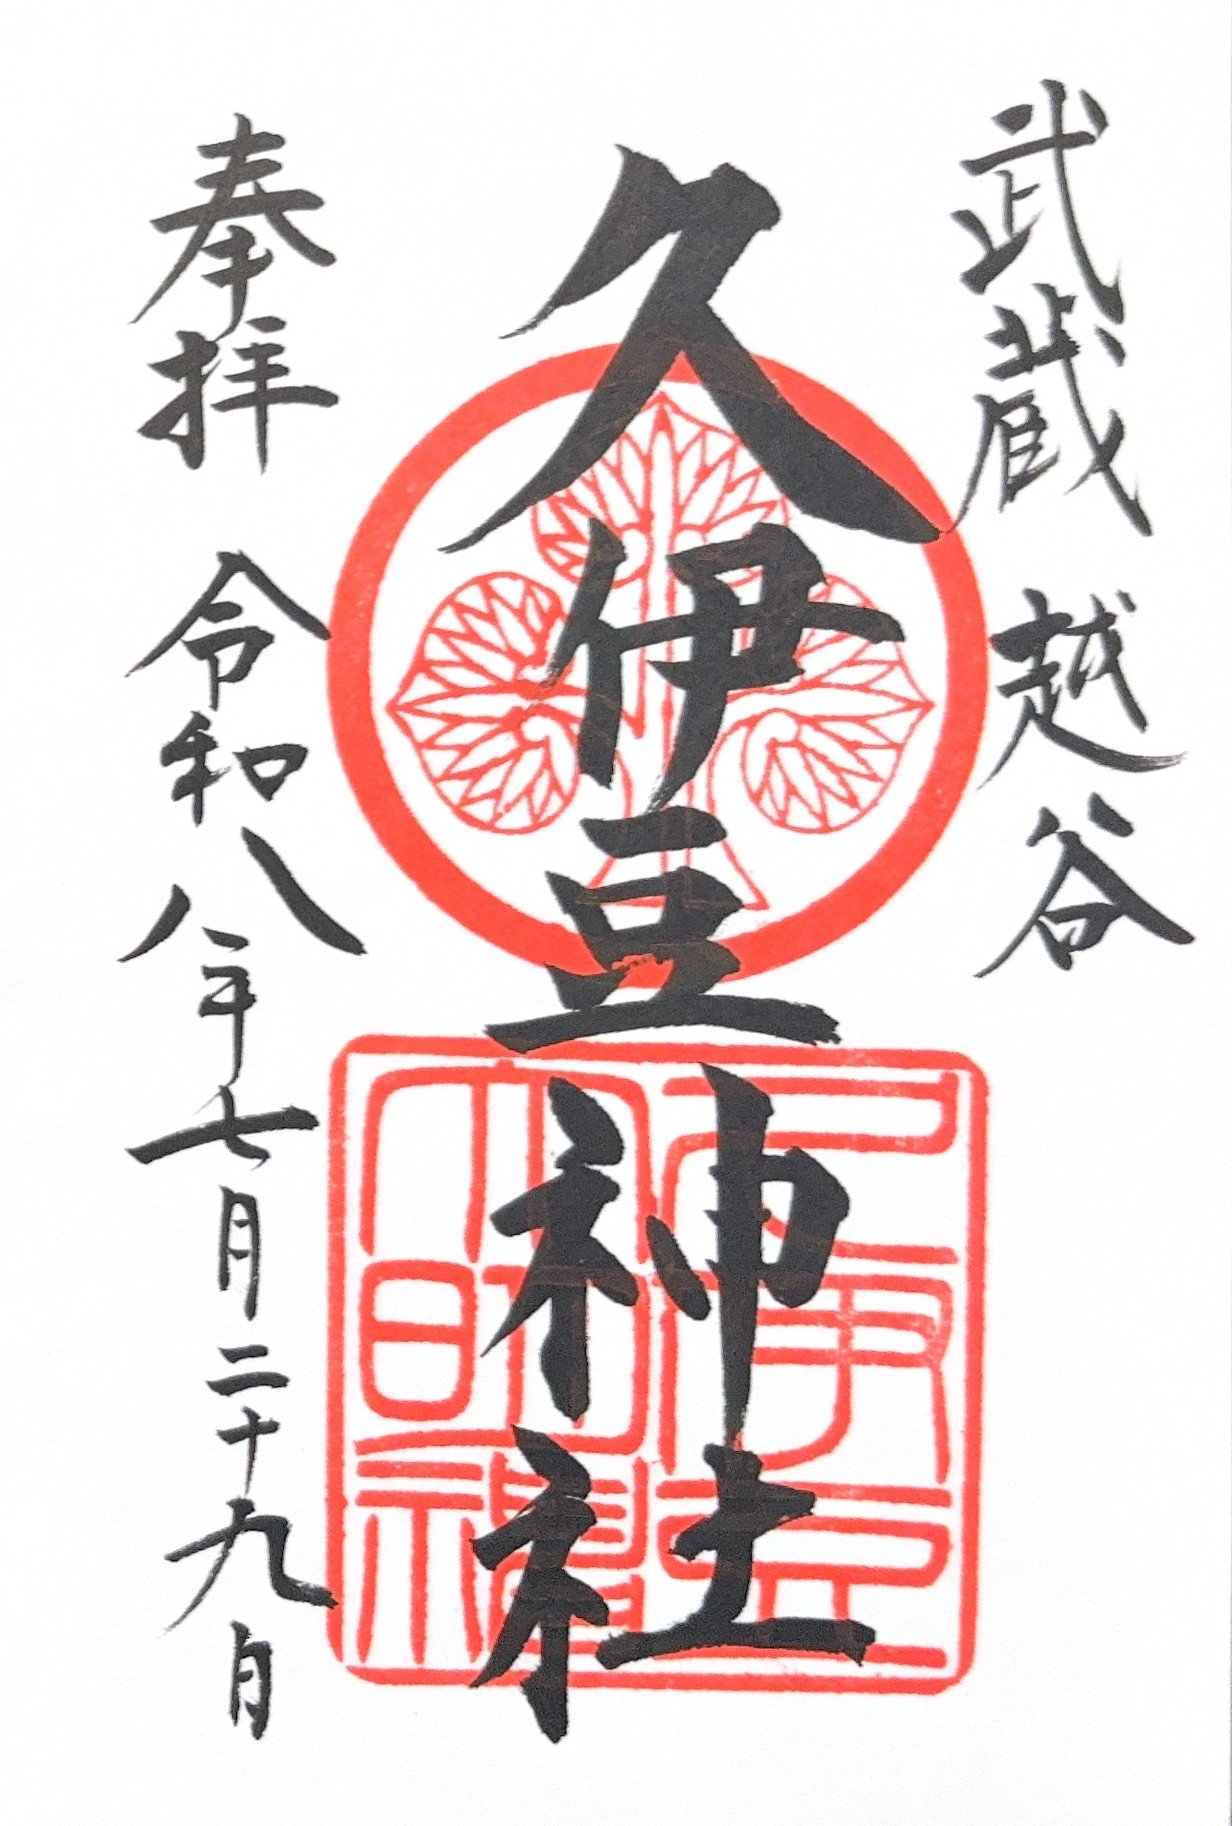 武蔵 越谷
久伊豆神社
久伊豆
大明神
奉拝 令和八年七月二十九日